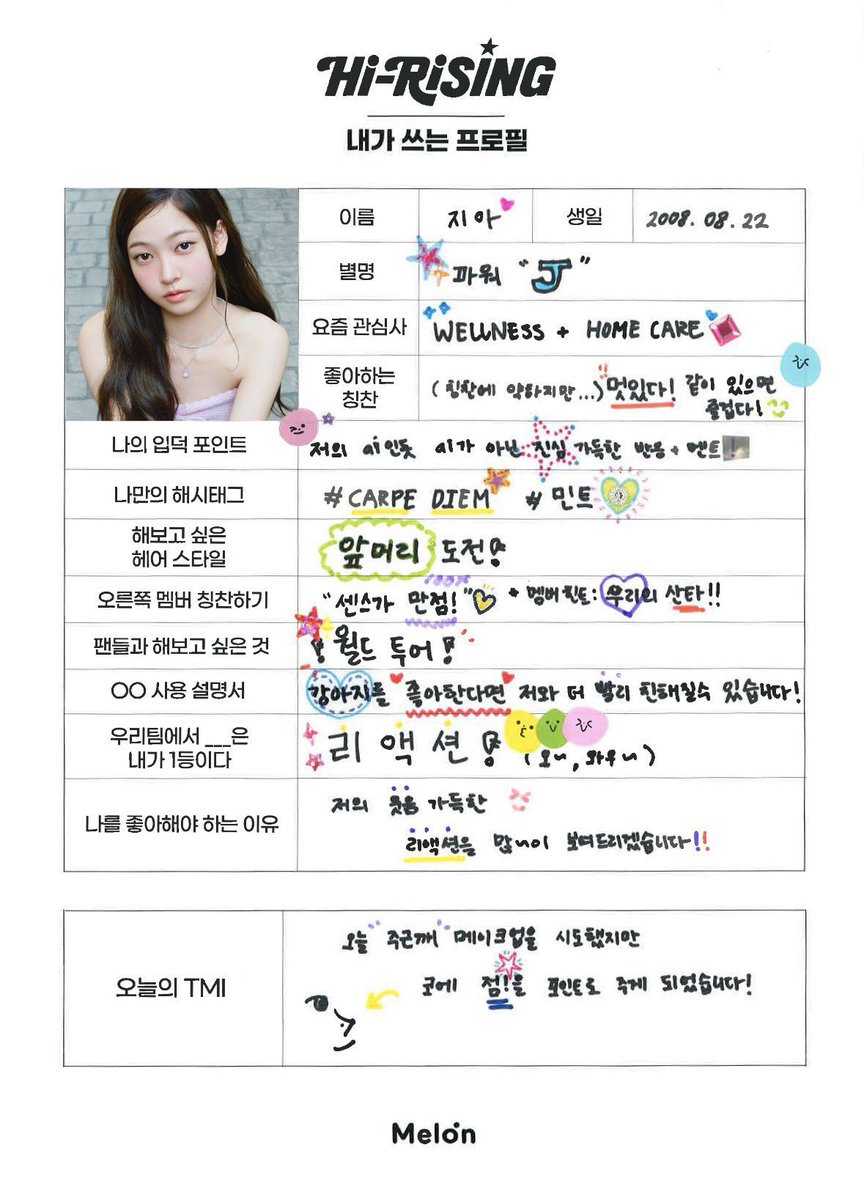 Hi-RiSING
내가 쓰는 프로필
이름
지아
생일
2008. 08. 22
별명
파워 "J"
요즘 관심사
WELLNESS + HOME CARE
좋아하는
칭찬
(칭찬에 약하지만...) 멋있다! 같이 있으면
즐겁다!
나의 입덕 포인트
저의 ai인듯 ai가 아닌 진심 가득한 반응 + 멘트!
나만의 해시태그
# CARPE DIEM # 민트
해보고 싶은
헤어 스타일
앞머리 도전!
오른쪽 멤버 칭찬하기
100%
"센스가 만점!" * 멤버힌트: 우리의 산타!!
팬들과 해보고 싶은 것
! 월드 투어!
OO 사용 설명서
강아지를 좋아한다면 저와 더 빨리 친해질수 있습니다!
우리팀에서 ___은
내가 1등이다
리액션! (오~, 와우~)
나를 좋아해야 하는 이유
저의 웃음 가득한
리액션을 많~이 보여드리겠습니다!!
오늘의 TMI
오늘 주근깨 메이크업을 시도했지만
코에 점!을 포인트로 주게 되었습니다!
Melon